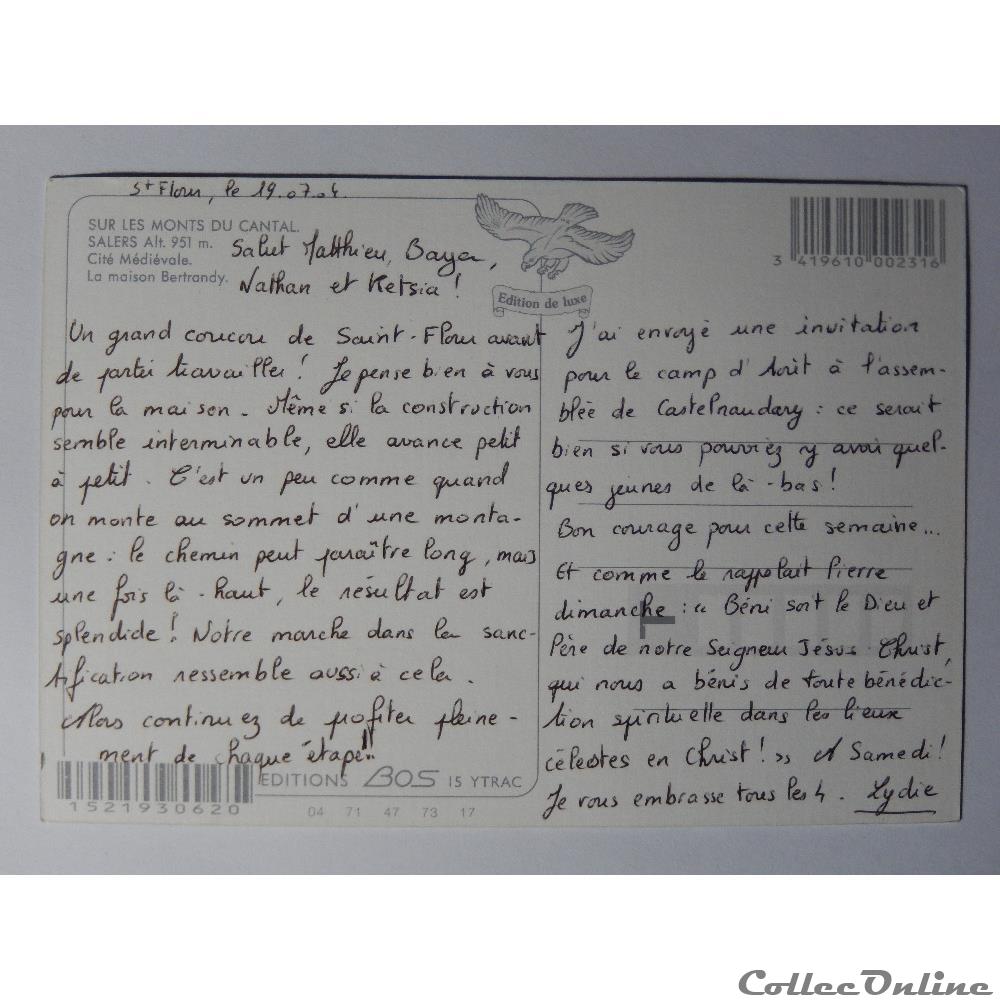 St Flour, le 19.07.04.
SUR LES MONTS DU CANTAL.
SALERS Alt. 951 m.
Cité Médiévale.
La maison Bertrandy.
Salut Matthieu, Baya,
Nathan et Ketsia !
Edition de luxe
3 419610 002316
Un grand coucou de Saint-Flour avant
de partir travailler ! Je pense bien à vous
pour la maison. Même si la construction
semble interminable, elle avance petit
à petit. C'est un peu comme quand
on monte au sommet d'une monta-
gne : le chemin peut paraître long, mais
une fois là-haut, le résultat est
splendide ! Notre marche dans la sanc-
tification ressemble aussi à cela.
Alors continuez de profiter pleine-
ment de chaque étape!!
EDITIONS BOS 15 YTRAC
1521930620
04 71 47 73 17
J'ai envoyé une invitation
pour le camp d'Août à l'assem-
blée de Castelnaudary : ce serait
bien si vous pouviez y avoir quel-
ques jeunes de là-bas !
Bon courage pour cette semaine...
Et comme le rappelait Pierre
dimanche : « Béni soit le Dieu et
Père de notre Seigneur Jésus-Christ,
qui nous a bénis de toute bénédic-
tion spirituelle dans les lieux
célestes en Christ ! » A Samedi !
Je vous embrasse tous les 4. Lydie
CollecOnline